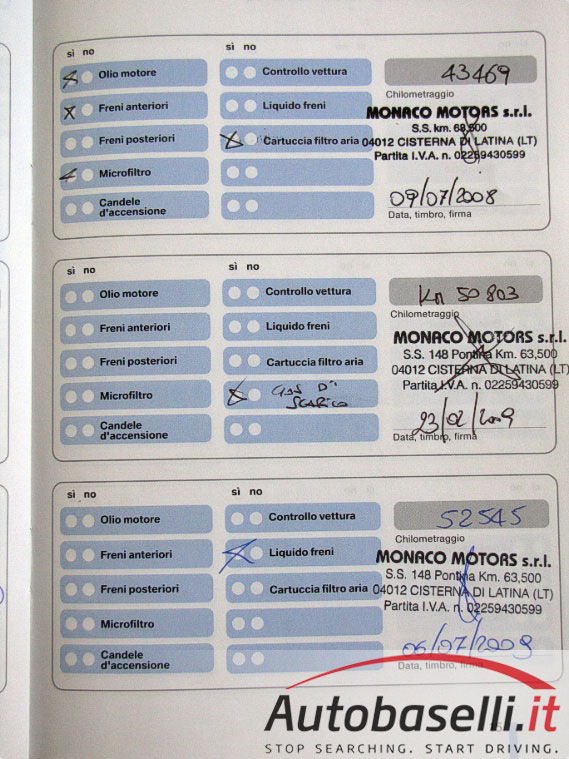 sì no
sì no
Olio motore
Controllo vettura
43469
Chilometraggio
Freni anteriori
Liquido freni
MONACO MOTORS s.r.l.
S.S. km. 63,500
Freni posteriori
Cartuccia filtro aria
04012 CISTERNA DI LATINA (LT)
Partita I.V.A. n. 02259430599
Microfiltro
09/07/2008
Candele
d'accensione
Data, timbro, firma
sì no
sì no
Olio motore
Controllo vettura
Km 50803
Chilometraggio
Freni anteriori
Liquido freni
MONACO MOTORS s.r.l.
S.S. 148 Pontina Km. 63,500
Freni posteriori
Cartuccia filtro aria
04012 CISTERNA DI LATINA (LT)
Partita I.V.A. n. 02259430599
Microfiltro
GAS DI
SCARICO
23/02/2009
Candele
d'accensione
Data, timbro, firma
sì no
sì no
Olio motore
Controllo vettura
52545
Chilometraggio
Freni anteriori
Liquido freni
MONACO MOTORS s.r.l.
S.S. 148 Pontina Km. 63,500
Freni posteriori
Cartuccia filtro aria
04012 CISTERNA DI LATINA (LT)
Partita I.V.A. n. 02259430599
Microfiltro
06/07/2009
Candele
d'accensione
Data, timbro, firma
Autobaselli.it
STOP SEARCHING. START DRIVING.